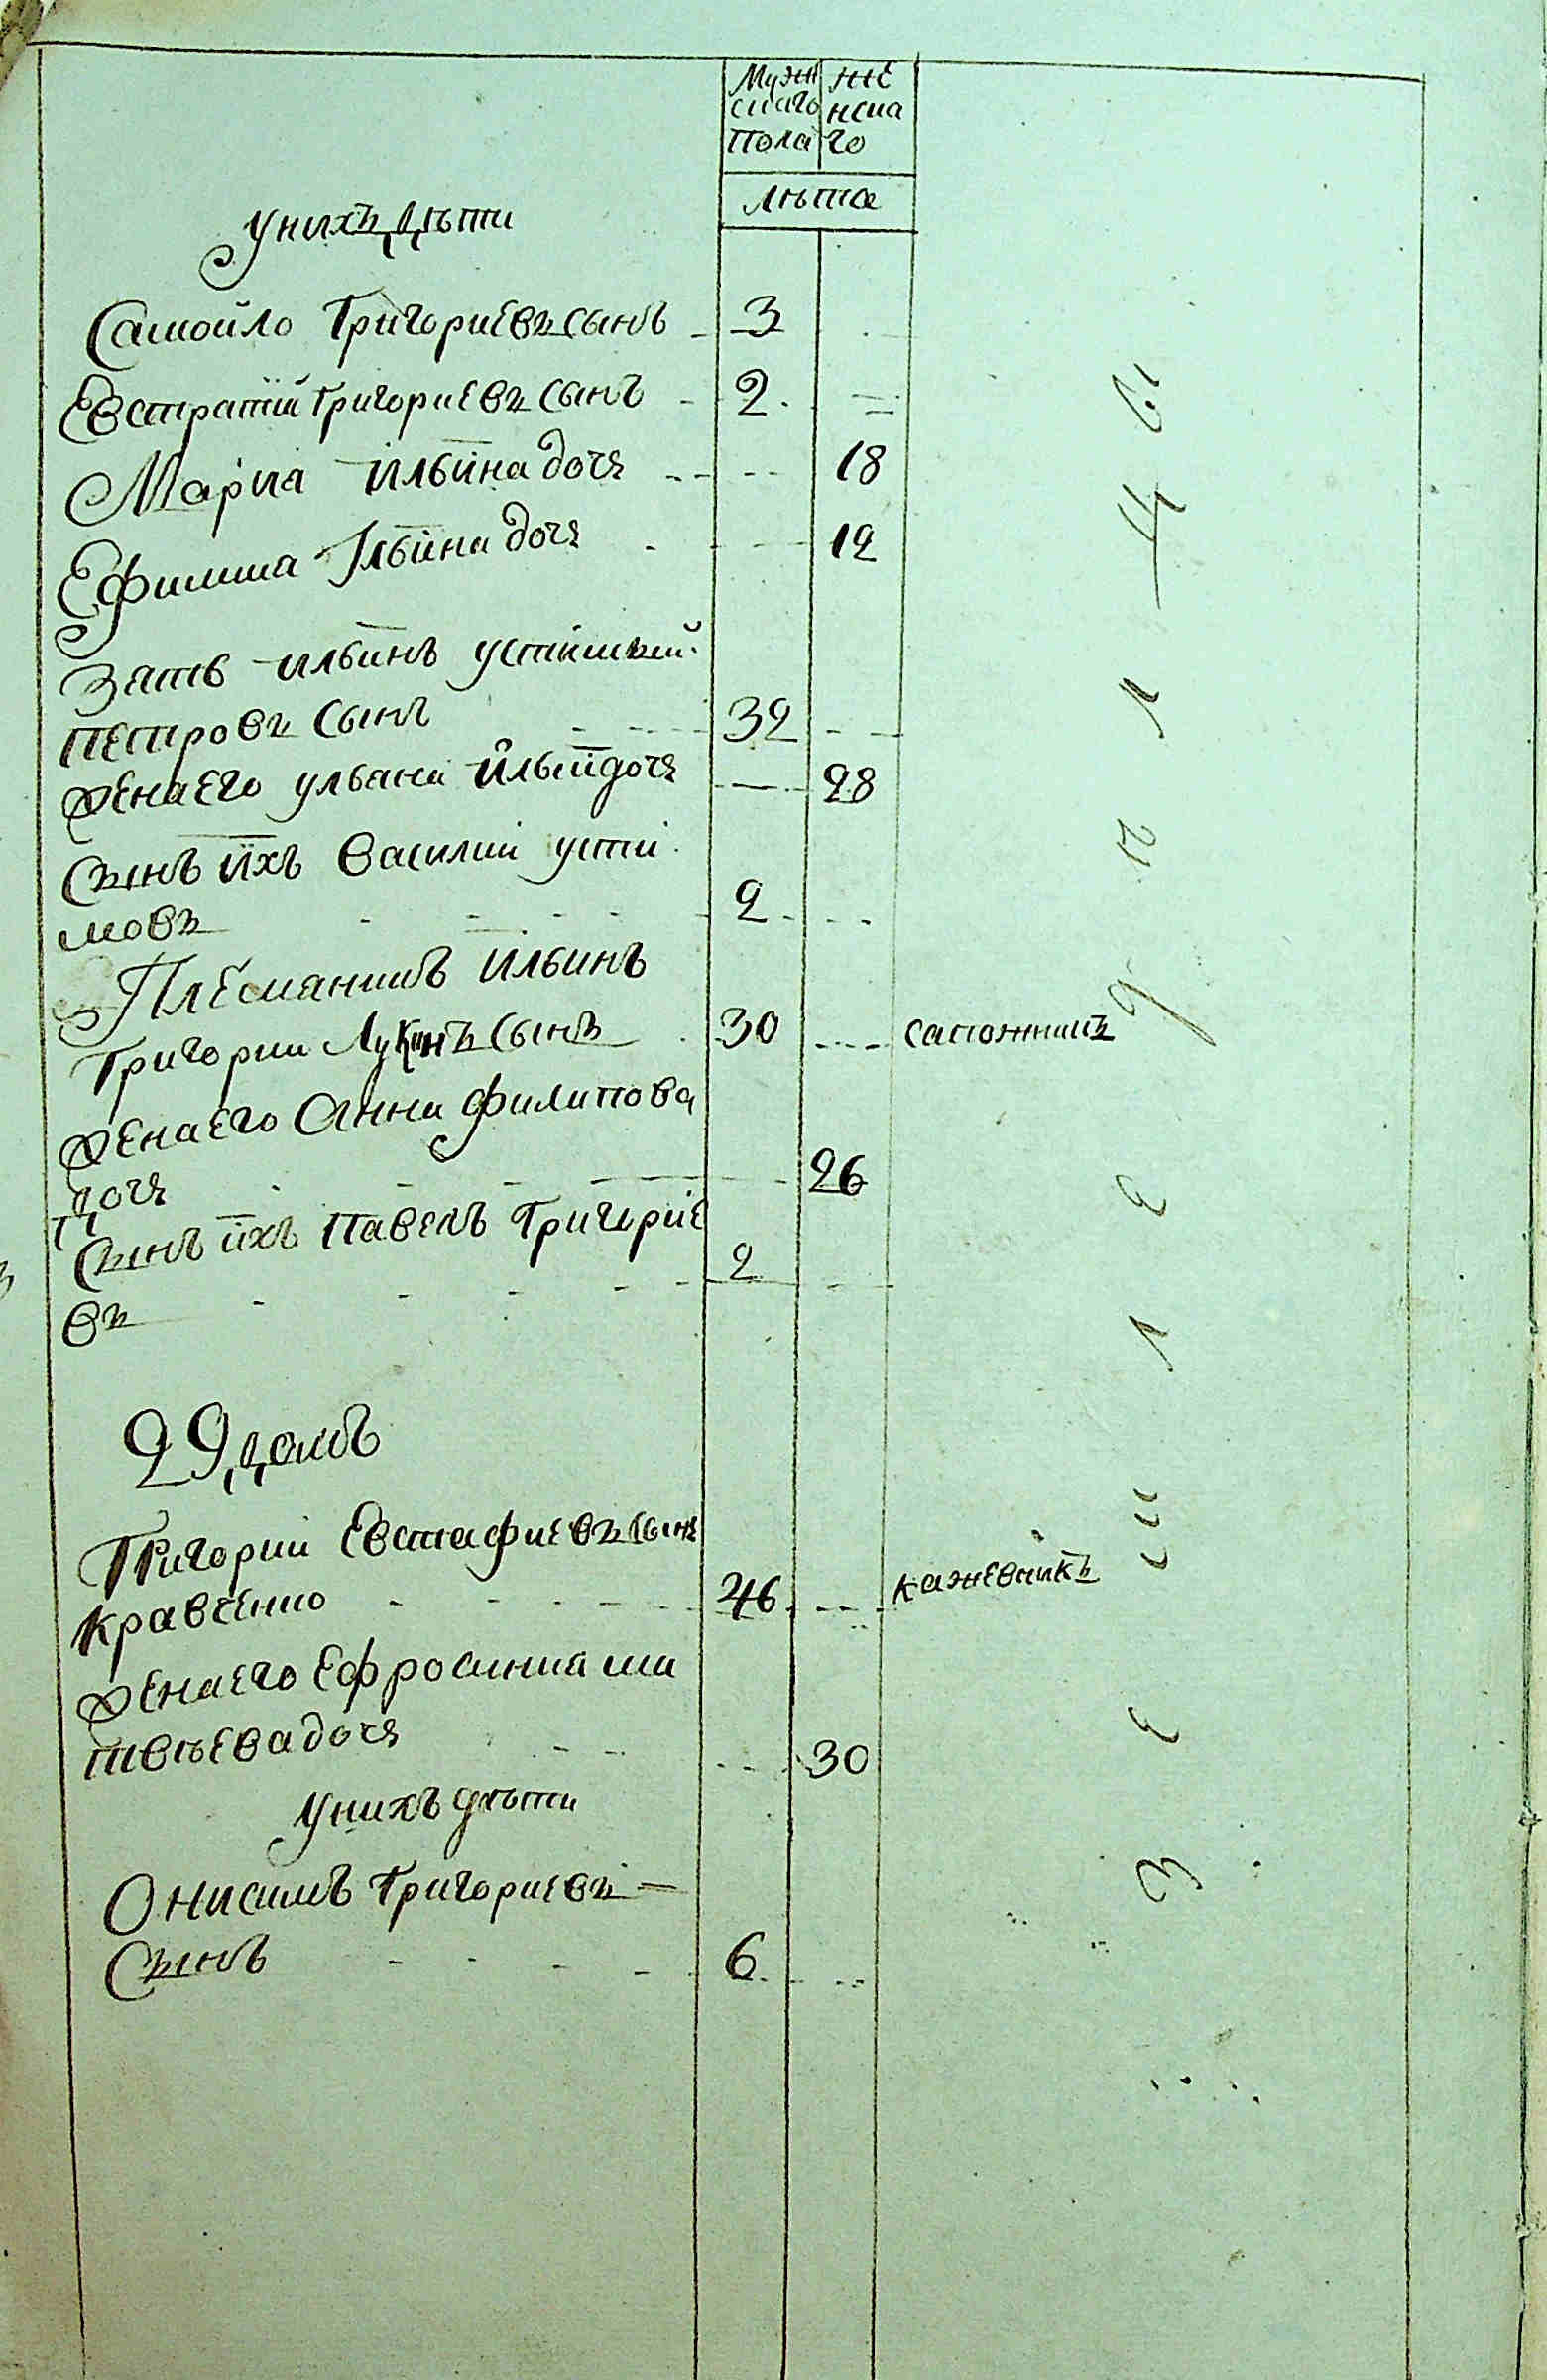 Мужскаго пола
Женскаго
лѣта
У нихъ дѣти
Самойло Григориевъ сынъ 3
Евстратий Григориевъ сынъ 2
Мариа Ильина дочь 18
Ефимиа Ильина дочь 12
Зять Ильинъ Устимъ
Петровъ сынъ 32
Жена его Ульана Ильи дочь 28
Сынъ ихъ Василий Усти
мовъ 2
Племянникъ Ильинъ
Григории Лукинъ сынъ 30 сапожникъ
Жена его Анна Филипова
дочь 26
Сынъ ихъ Павелъ Григорие
въ 2
29 домъ
Григорий Евстафиевъ сынъ
Кравченко 46 кажевникъ
Жена его Ефросиниа ма
твѣева дочь 30
У нихъ дѣти
Онисимъ Григориевъ
сынъ 6
Земледелцы